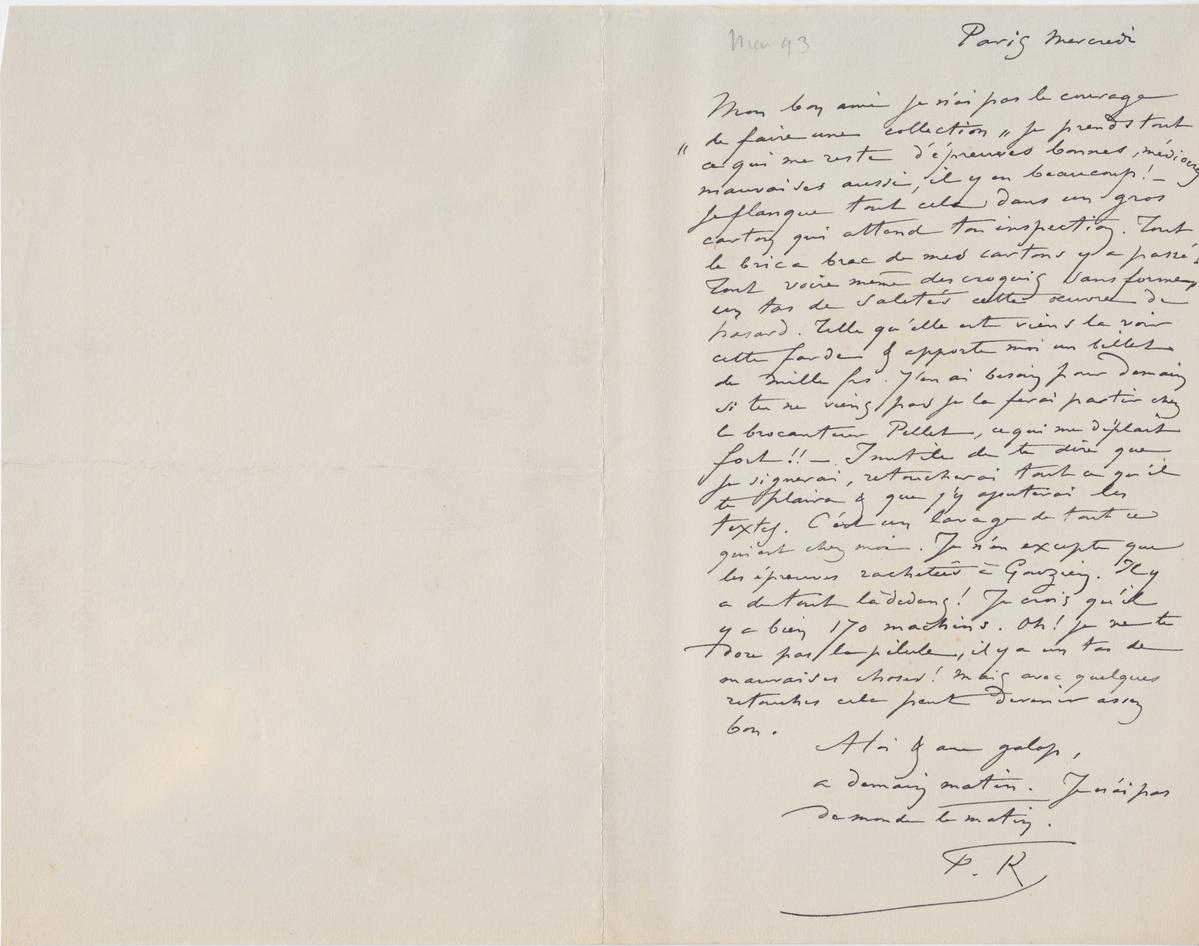 Mai 93
Paris Mercredi
Mon bon ami je n'ai pas le courage
de faire une collection „ Je prends tout
„ ce qui me reste d'épreuves bonnes, médiocres
mauvaises aussi, il y en beaucoup! –
Je flanque tout cela dans un gros
carton qui attend ton inspection. Tout
le bric a brac de mes cartons y a passé
Tout voire même des croquis sans formes
un tas de saletés cette œuvre de
hasard. Telle qu'elle est viens la voir
cette farde & apporte moi un billet
de mille frs. J'en ai besoin pour demain
si tu ne viens pas je la ferai partir chez
le brocanteur Pellet, ce qui me déplait
fort!! – Inutile de te dire que
je signerai, retoucherai tout ce qu'il
te plaira & que j'y ajouterai les
textes. C'est un lavage de tout ce
qui est chez moi. Je n'en excepte que
les épreuves rachetées à Gouzien. Il y
a de tout là dedans! Je crois qu'il
y a bien 170 machins. Oh! je ne te
dore pas la pilule, il y a un tas de
mauvaises choses! Mais avec quelques
retouches cela peut devenir assez
bon.
A toi & au galop,
a demain matin. Je n'ai pas
de monde le matin.
F. R